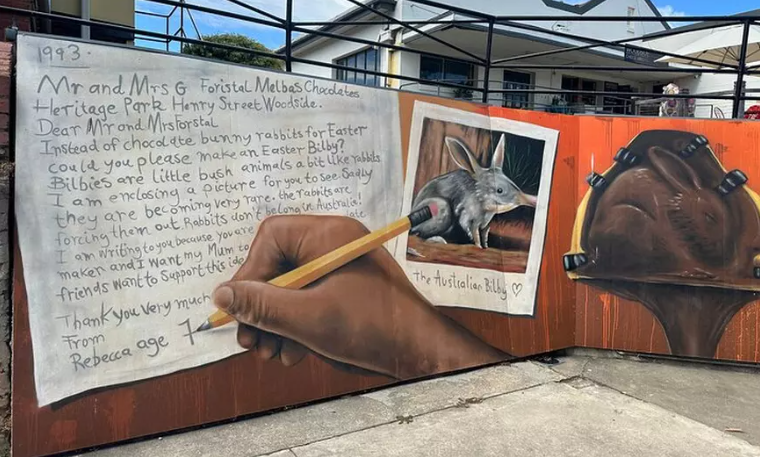 1993.
Mr and Mrs G Foristal Melbas Chocolates
Heritage Park Henry Street Woodside.
Dear Mr and Mrs Forstal
Instead of chocolate bunny rabbits for Easter
could you please make an Easter Bilby?
Bilbies are little bush animals a bit like rabbits.
I am enclosing a picture for you to see. Sadly
they are becoming very rare. the rabbits are
forcing them out. Rabbits don't belong in Australia!
I am writing to you because you are
maker and I want my Mum to
friends want to support this ide
Thank you very much
From
Rebecca age 7
The Australian Bilby ♡